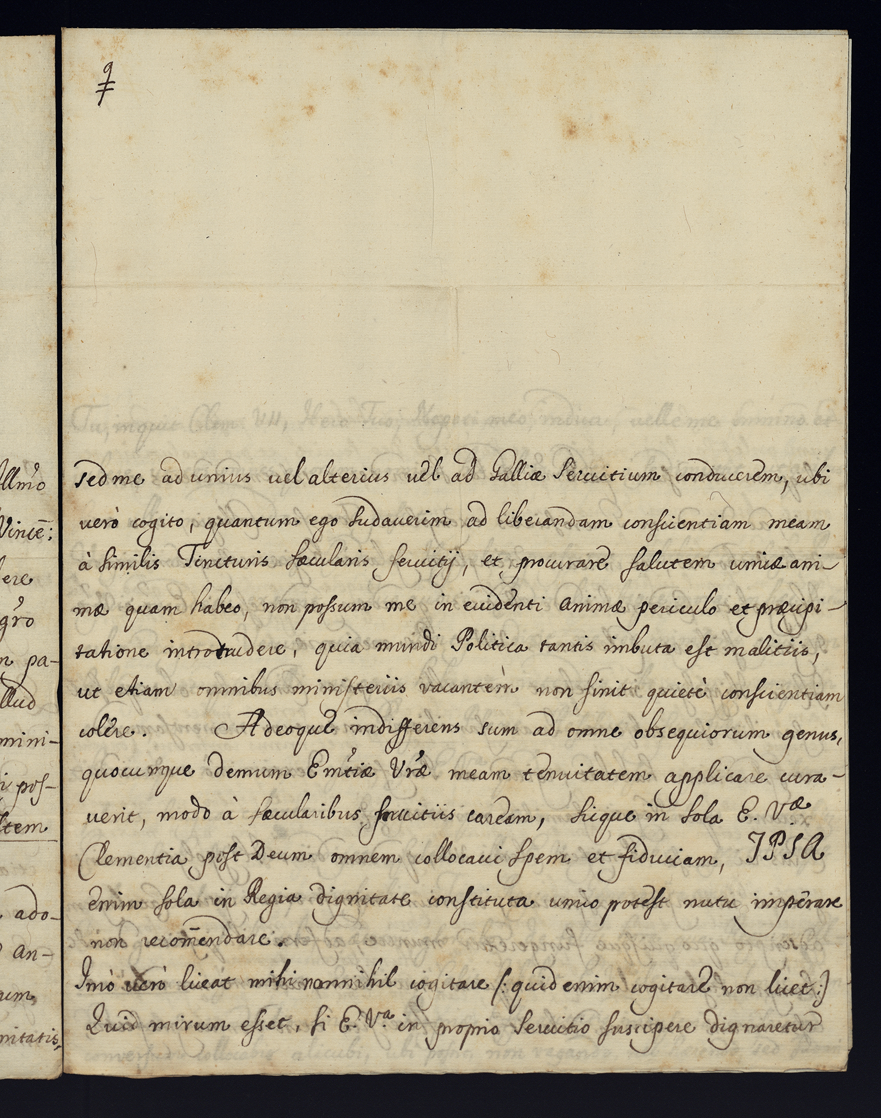 sed me ad unius vel alterius vel ad Galliæ Servitium conducerem, ubi
verò cogito, quantum ego sudaverim ad liberandam conscientiam meam
à similis Tincturis sæcularis servitij, et procurare salutem unicæ ani-
mæ quam habeo, non possum me in evidenti animæ periculo et præcipi-
tatione introtrudere, quia mundi Politica tantis imbuta est malitiis,
ut etiam omnibus ministeriis vacantem non sinit quietè conscientiam
colere. Adeoque indifferens sum ad omne obsequiorum genus,
quocumque demum Emtiæ Vræ meam tenuitatem applicare cura-
verit, modo à sæcularibus servitiis caream, sicque in sola E. Væ
Clementia post Deum omnem collocavi spem et fiduciam, IPSA
enim sola in Regia dignitate constituta unico potest nutu imperare
non recomendare.
Imò verò liceat mihi nonnihil cogitare (: quid enim cogitare non licet :)
Quid mirum esset, si E. Va. in proprio Servitio suscipere dignaretur
Illmo
Vince:
ere
gro
n pa-
llud
mini-
i pos-
tem
ado-
an-
um
nitatis,